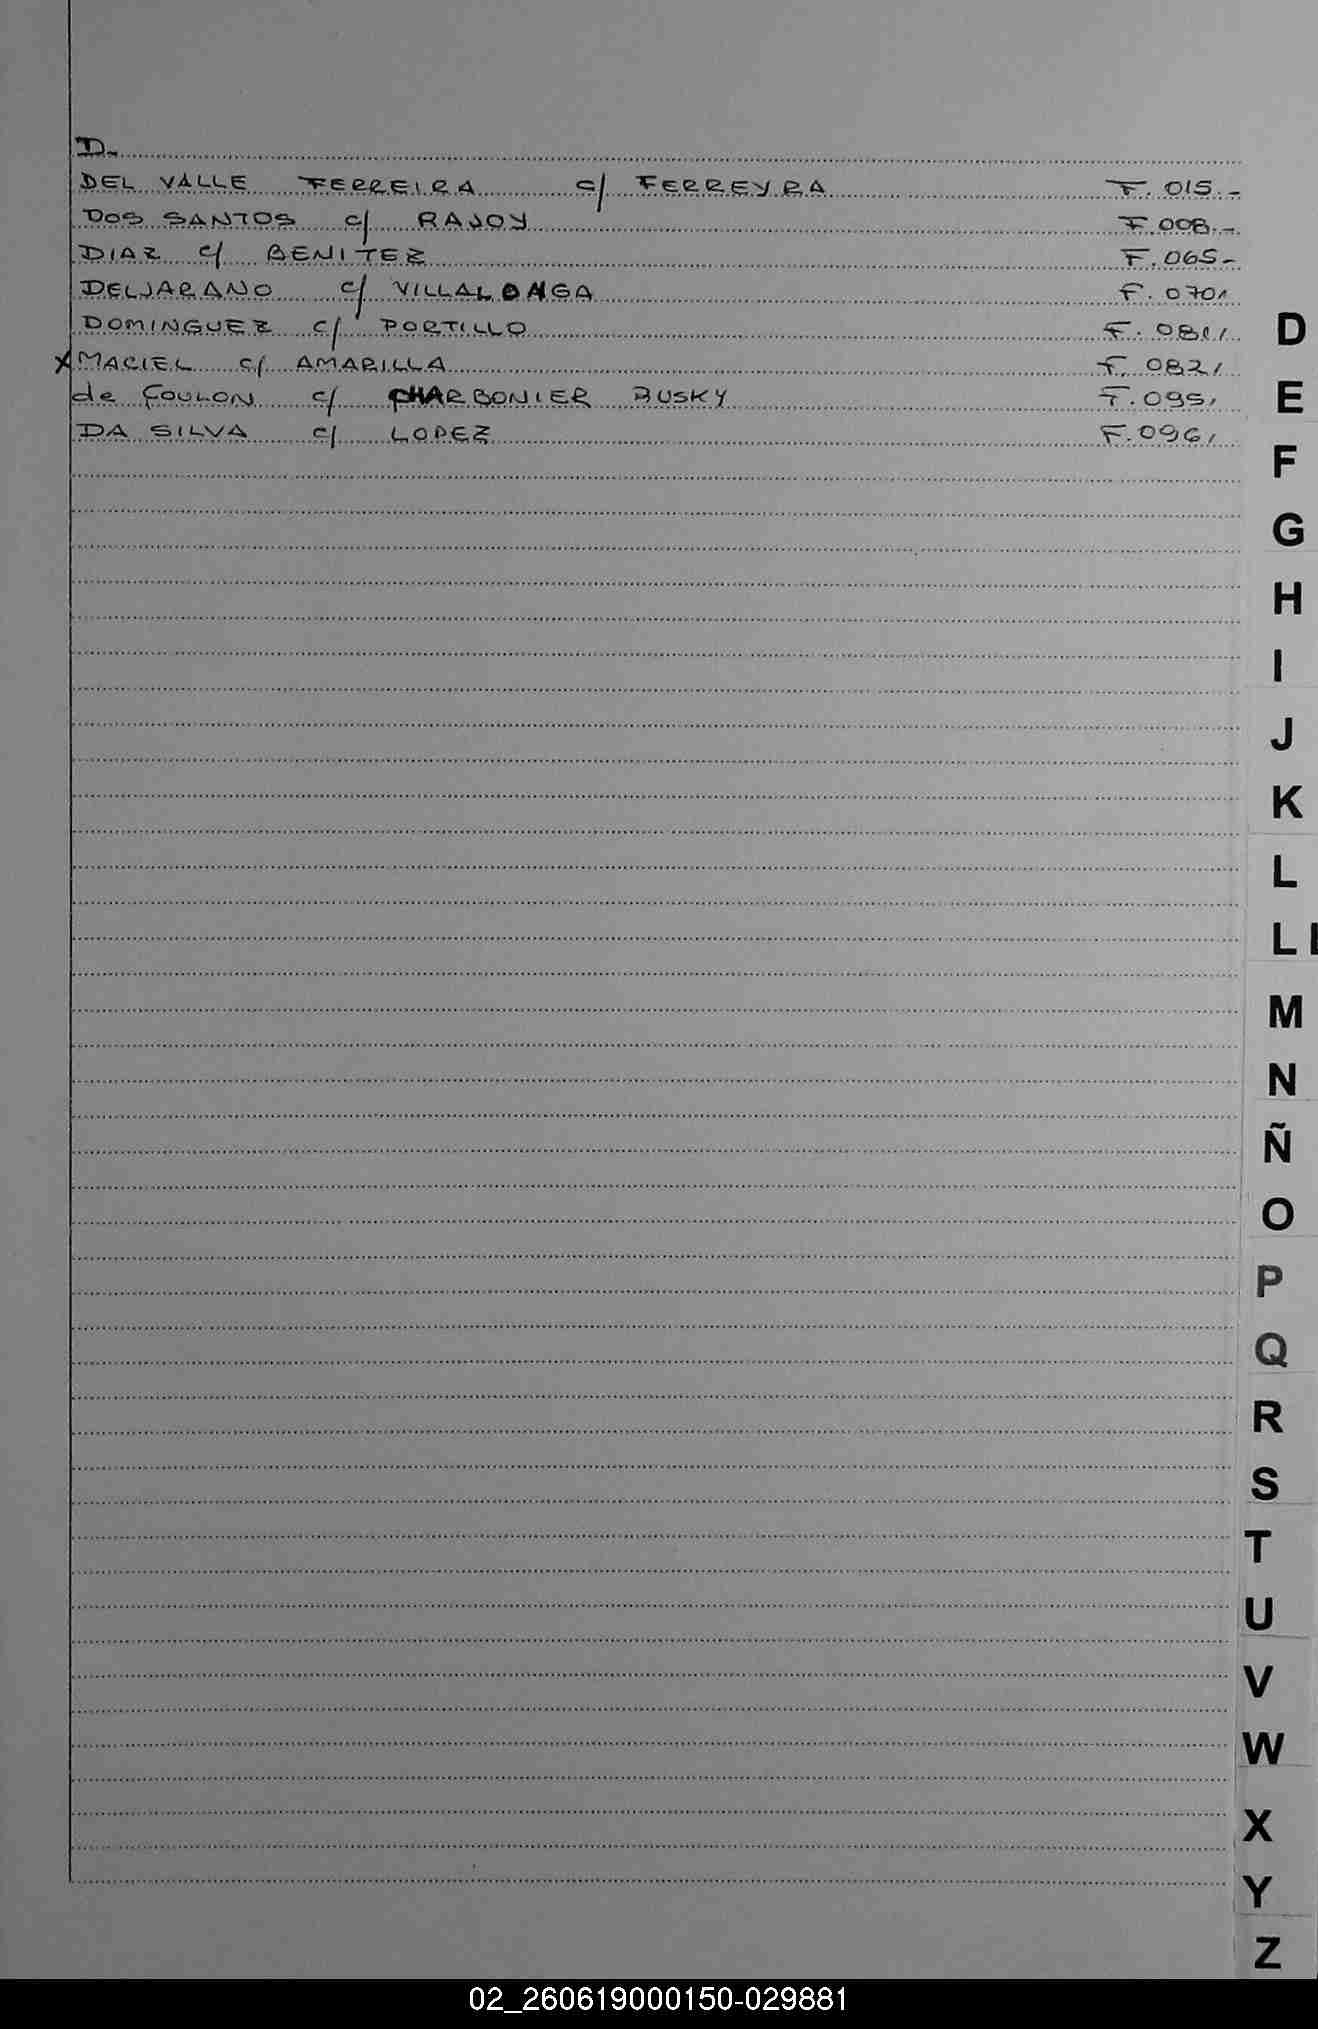 D.-
DEL VALLE FERREIRA c/ FERREYRA F. 015.-
DOS SANTOS c/ RAJOY F. 008.-
DIAZ c/ BENITEZ F. 065-
DELJARANO c/ VILLALONGA F. 070,
DOMINGUEZ c/ PORTILLO F. 081,
X MACIEL c/ AMARILLA F. 082,
de FOULON c/ CHARBONIER BUSKY F. 095,
DA SILVA c/ LOPEZ F. 096,
D
E
F
G
H
I
J
K
L
LL
M
N
Ñ
O
P
Q
R
S
T
U
V
W
X
Y
Z
02_260619000150-029881